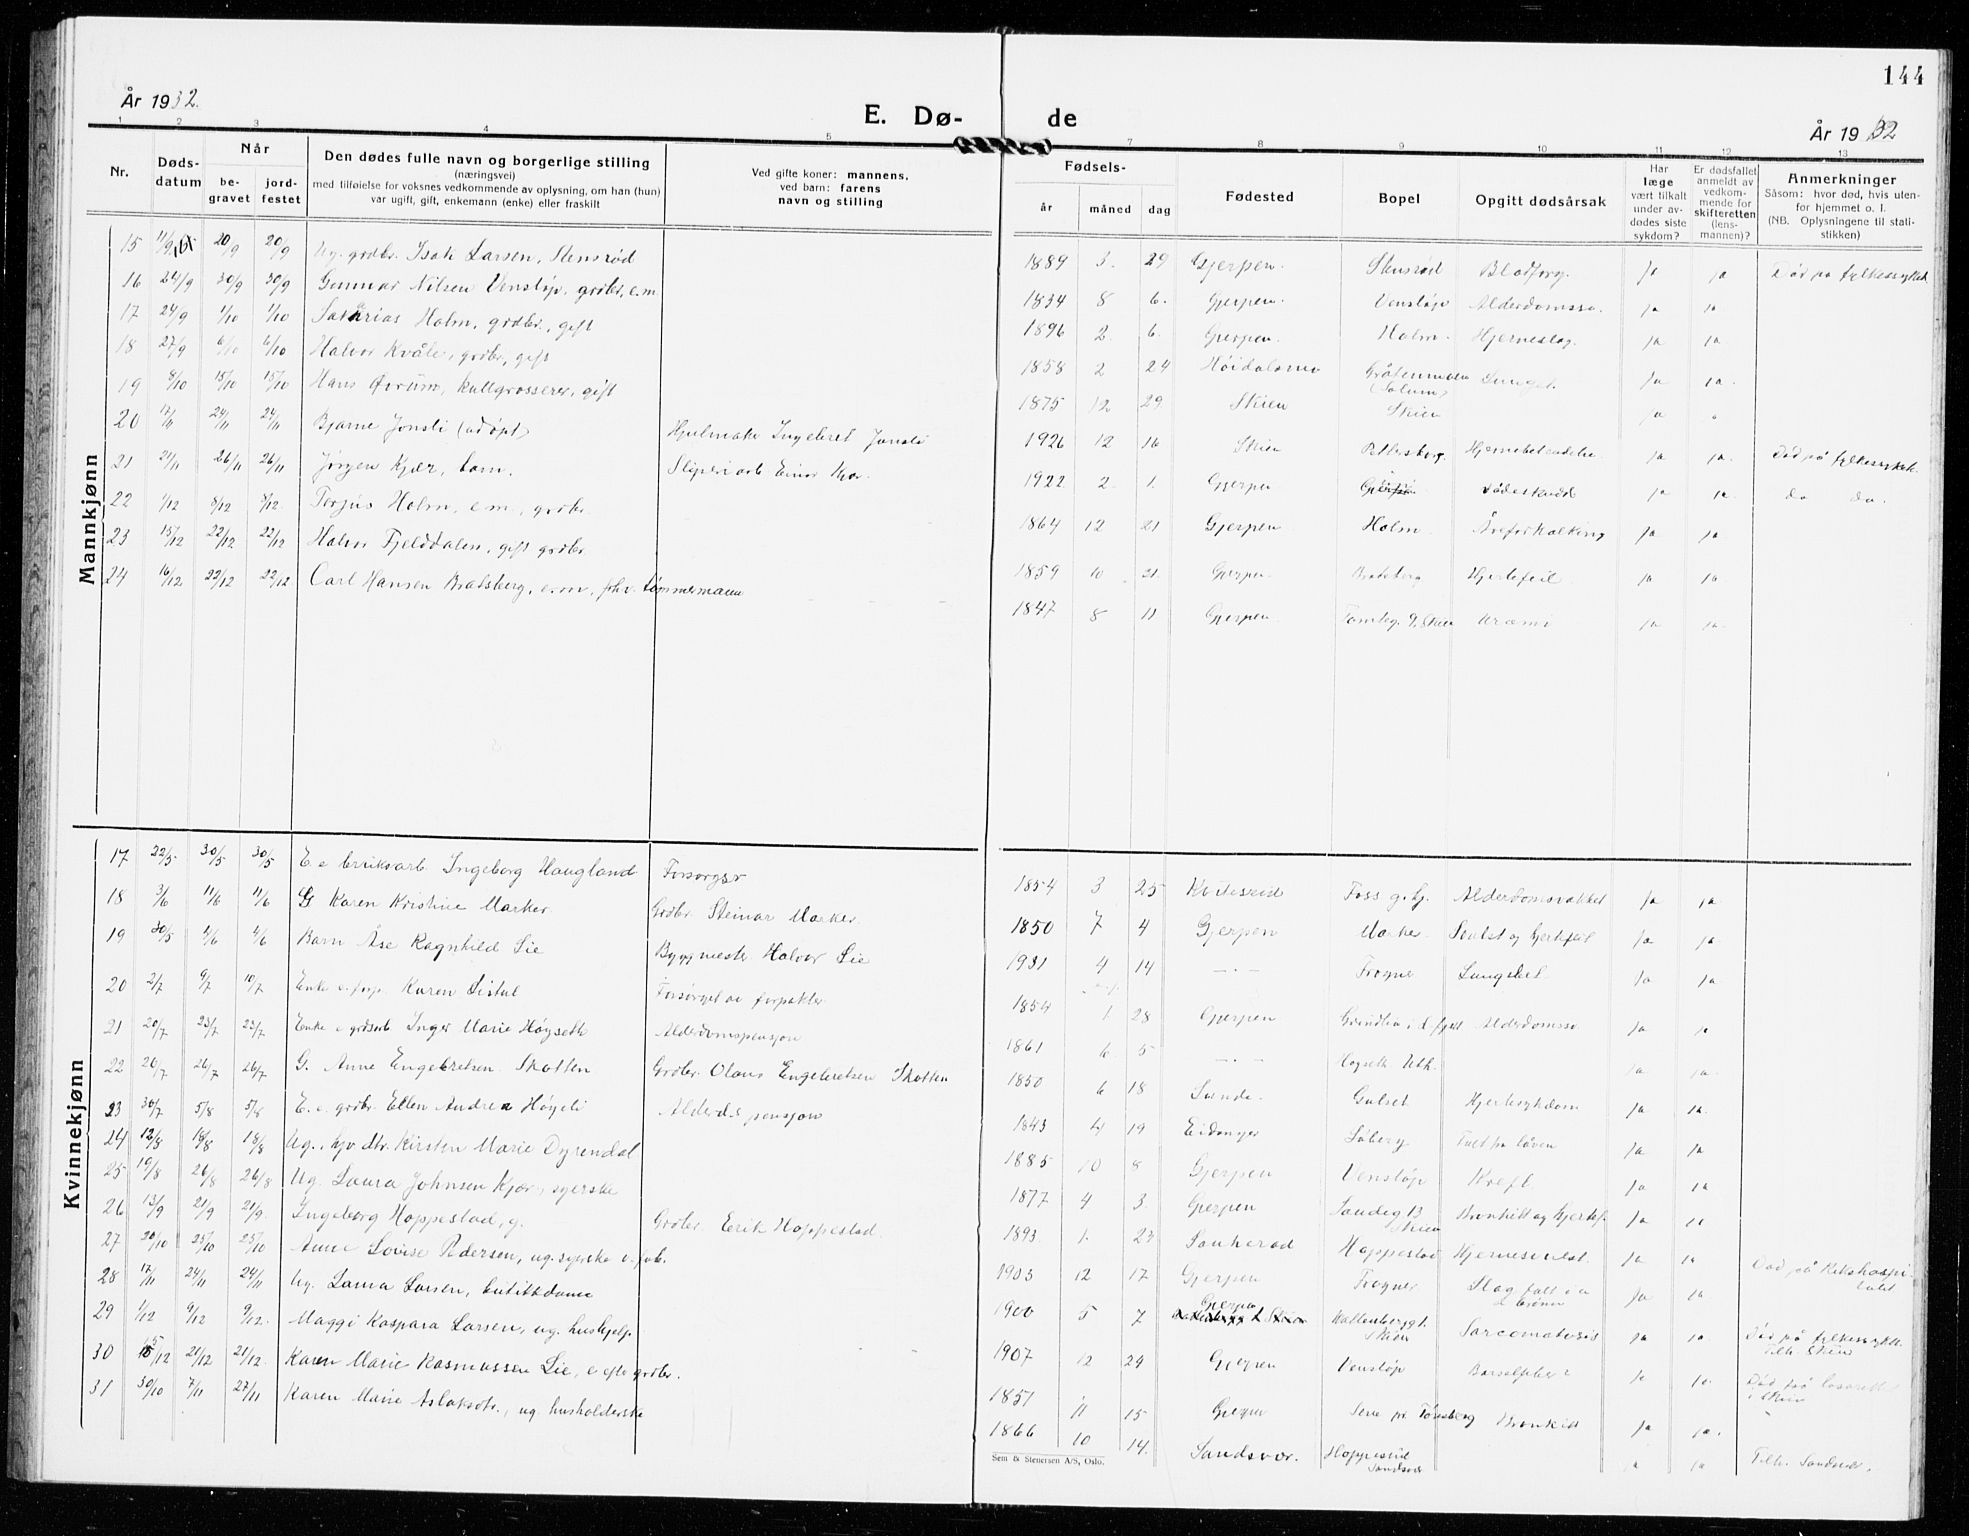 144
År 1932.
E. Dø-
de
År 1932
1 2 3 4 5 7 8 9 10 11 12 13
Nr.
Døds-
datum
Når
be-
gravet
jord-
festet
Den dødes fulle navn og borgerlige stilling
(næringsvei)
med tilføielse for voksnes vedkommende av oplysning, om han (hun)
var ugift, gift, enkemann (enke) eller fraskilt
Ved gifte koner: mannens,
ved barn: farens
navn og stilling
Fødsels-
år måned dag
Fødested
Bopel
Opgitt dødsårsak
Har
læge
vært tilkalt
under av-
dødes siste
sykdom?
Er dødsfallet
anmeldt av
vedkom-
mende for
skifteretten
(lens-
mannen)?
Anmerkninger
Såsom: hvor død, hvis uten-
for hjemmet o. l.
(NB. Oplysningene til stati-
stikken)
Mannkjønn
15 11/9 20/9 20/9 Ug. grdbr. Isak Larsen, Stensrød 1889 3. 29 Gjerpen. Stensrød Blodforg. ja ja Død på fylkessykeh.
16 24/9 30/9 30/9 Gunnar Nilsen Venstøp, grdbr, e.m. 1834 8 6. Gjerpen. Venstøp Alderdomssv. ja ja
17 24/9 1/10 1/10 Sakarias Holm, grdbr., gift 1896 2. 6. Gjerpen. Holm. Hjerneslag. ja ja
18 27/9 6/10 6/10 Halvor Kvåle, grdbr, gift 1858 2 24 Høidalsmo Gråtenmoen (Solum) Lunget. ja ja
19 8/10 15/10 15/10 Hans Ørrum, kullgrosserer, gift 1875 12 29. Skien Skien ja
20 17/11 24/11 24/11 Bjarne Jonsli (adopt) Hjulmaker Ingebret Jonsli 1926 12 16 Skien Hjernebetendelse ja ja. Død på fylkessykeh.
21 21/11 26/11 26/11 Jørgen Kjær, barn. Sliperiarb. Einar Kjær. 1922 2 1. Gjerpen Vådeskudd ja ja do do.
22 1/12 8/12 8/12. Torjus Holm, e.m., grdbr. 1864 12 21 Gjerpen Holm. Åreforkalking ja ja
23 15/12 22/12 22/12 Halvor Fjelddalen, gift grdbr 1859 10 21. Gjerpen. Bratsberg Hjertefeil. ja ja
24 16/12 22/12 22/12 Carl Hansen Bratsberg, e.m., fhv. tømmermann 1847 8 11 Gjerpen. Uræmi ja ja.
Kvinnekjønn
17 22/5 30/5 30/5 E. e bruksarb Ingeborg Haugland Forsorgsv 1854 3 25 Kviteseid Foss g.hj. Alderdomsvakkel ja ja
18 3/6 11/6 11/6 G Karen Kristine Marker Grdbr. Steinar Marker. 1850 7 4 Gjerpen Marker. Svulst og hjertefeil ja ja
19 30/5 4/6 4/6 Barn Åse Ragnhild Lie Byggmester Halvor Lie 1931 4 14 — . — Frogner ja ja
20 2/7 9/7 10/7 Enke e. forp. Karen Listul Forsørget av forpakter 1854 1. 28 Gjerpen Alderdomssv ja ja
21 20/7 23/7 23/7 Enke e grdsarb Inger Marie Høgseth Alderdomspensjon 1861 6 5 — . — Høgseth ja ja.
22 20/7 26/7 26/7 G. Anne Engebretsen Skotten Grdbr. Olaus Engebretsen Skotten 1850 6 18 Gulset Hjertesykdom ja ja.
23 30/7 5/8 5/8 E. e. grdbr. Ellen Andrea Høgeli Alderds pensjon 1843 4 19 Eidanger Falt fra låven ja ja
24 12/8 18/8 18/8 Ug., hjv dtr. Kirsten Marie Dyrendal 1885 10 8 Gjerpen Venstøp Kreft. ja ja
25 19/8 26/8 26/8 Ug. Laura Johnsen Kjær, syerske 1877 4 3. Gjerpen Skien Bronkitt og hjertef. ja ja
26 13/9 21/9 21/9. Ingeborg Hoppestad, g. Grdbr. Erik Hoppestad. 1893. 1. 23 Sauherad Hoppestad Hjernesvulst. ja ja
27 20/10 25/10 25/10 Anna Lovise Pedersen, ug. syerske 1903 12 17 Gjerpen Frogner ja ja. Død på Rikshospitalet
28 17/11 24/11 24/11 Ug. Laura Larsen, butikkdame 1900 5 7 Gjerpen Skien Sarcomatosis ja ja. Død på fylkessykh. Tilh. Skien
29 1/12 9/12 9/12. Maggi Kaspara Larsen, ug. hushjelp. 1907 12 24 Gjerpen Venstøp Barselfeber? ja ja. Død på lasarett i Skien
30 15/12 21/12 21/12. Karen Marie Rasmussen Lie, e efter grdbr. 1851 11 15 Gjerpen Tønsberg Bronkitt ja ja.
31 30/10 7/11 27/11 Karen Marie Aslaksdtr., ug. husholderske 1866 10 14. Sandsvær. Hoppestul Sandsvær ja ja Tilh. Sandsvær.
Sem & Stenersen A/S, Oslo.